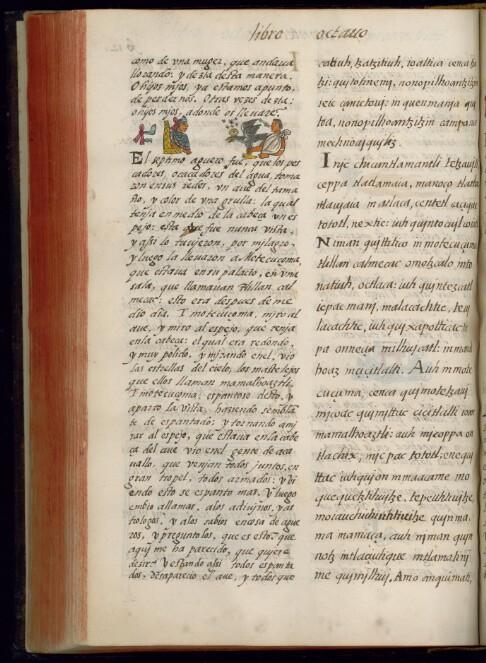 libro octauo
como de vna muger, que andaua
llorando: y dezia desta manera.
O hijos mjos, ya estamos apunto,
de perdernos. Otras vezes dezia:
o hijos mjos, adonde os lleuare?
El septimo aguero fue, que los pes
cadores, o caçadores del agua, toma
ron en sus redes, vn aue del tama
ño, y color de vna grulla: la qual
tenja en medio de la cabeça vn es
pejo: esta aue fue nunca vista,
y asi lo tuuieron, por mjlagro,
y luego la lleuaron a Motecuçoma,
que estaua en su palacio, en vna
sala, que llamauan tlillan cal
mecac: esto era despues de me
dio dia. I motecuçoma, mjro al
aue, y miro al espejo, que tenja
en la cabeça: el qual era redondo,
y muy polido, y mjrando en el, vio
las estrellas del cielo, los mastelejos
que ellos llaman mamalhoaztli.
I motecuçoma, espantose desto, y
aparto la vista, haziendo sembla
te de espantado: y tornando a mj
rar al espejo, que estaua en la cabe
ça del aue vio en el gente de aca
uallo, que venjan todos juntos, en
gran tropel, todos armados: y vi
endo esto se espanto mas. Y luego
embio allamar, alos adiujnos, y as
trologos, y alos sabios en cosa de ague
ros, y preguntolos, que es esto que
aquj me ha parecido, que quiere
dezir? Y estando asi todos espanta
dos, desaparecio el aue, y todos que
catiuh, tzatzitiuh,
qujtotinemj, nonopilhoantzitzin
in quenmanja qui
toa, nonopilhoantzitzin campa na
mechnoujqujliz.
Injc chicuntlamantli tetzaujtl
ceppa tlatlamaia, manoço tlatla
centetl
tototl, nextic: iuh qujn tocujlcoio
Njman qujttitito in motecuçoma
tlillan calmecac omotzcalo in to
natiuh, oc tlaca: iuh qujn tezcatl
icpac manj, malacachtic, teuj
lacachtic, iuh qujxapotticac:
pa onneçia in ilhujcatl: in mamal
hoaz in cicitlalti. Auh in mote
cuçuma, cenca qujmotetzauj
in jcoac qujmjttac cicitlalti ioan
mamalhoaztli: auh injc oppa on
tlachix, injc pac tototl: ene quj
ttac iuhqujon in ma acame mo
quequetztihujtze, tepeuhtiujtze
moiauchichiuhtihujtze qujn ma
ma maçaça, auh njman qujn
notz in tlaciuhque in tlamatinj
me qujmjlhuj, Amo anqujmati,